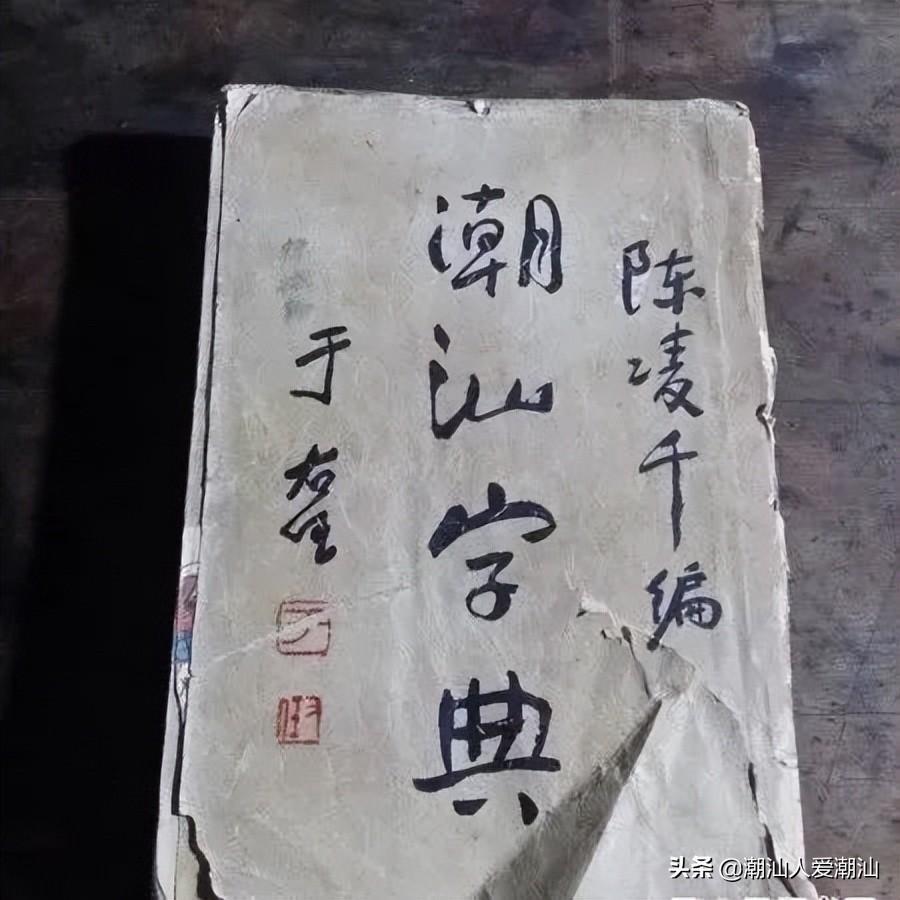 陈凌千编
潮汕字典
于右任
头条 @潮汕人爱潮汕